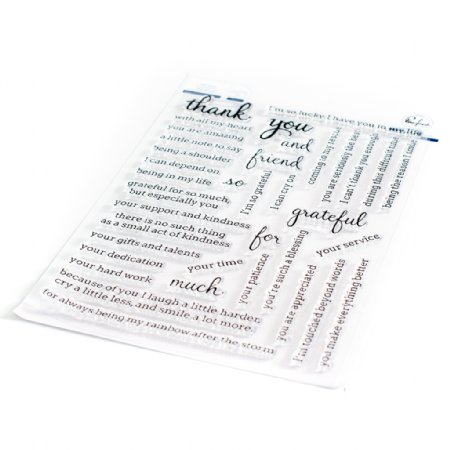 thank
you
I'm so lucky I have you in my life
with all my heart
you are amazing
a little note to say
being a shoulder
I can depend on
being in my life
grateful for so much,
but especially you
your support and kindness
there is no such thing
as a small act of kindness
your gifts and talents
your dedication
your hard work
because of you I laugh a little harder,
cry a little less, and smile a lot more.
for always being my rainbow after the storm
and
friend
so
I'm so grateful
I can cry on
coming to my
you are seriously the best
I can't thank you enough
during this difficult time
being the reason I smile
grateful
for
your service
your time
much
your patience
you're such a blessing
you are appreciated
I'm touched beyond words
you make everything better